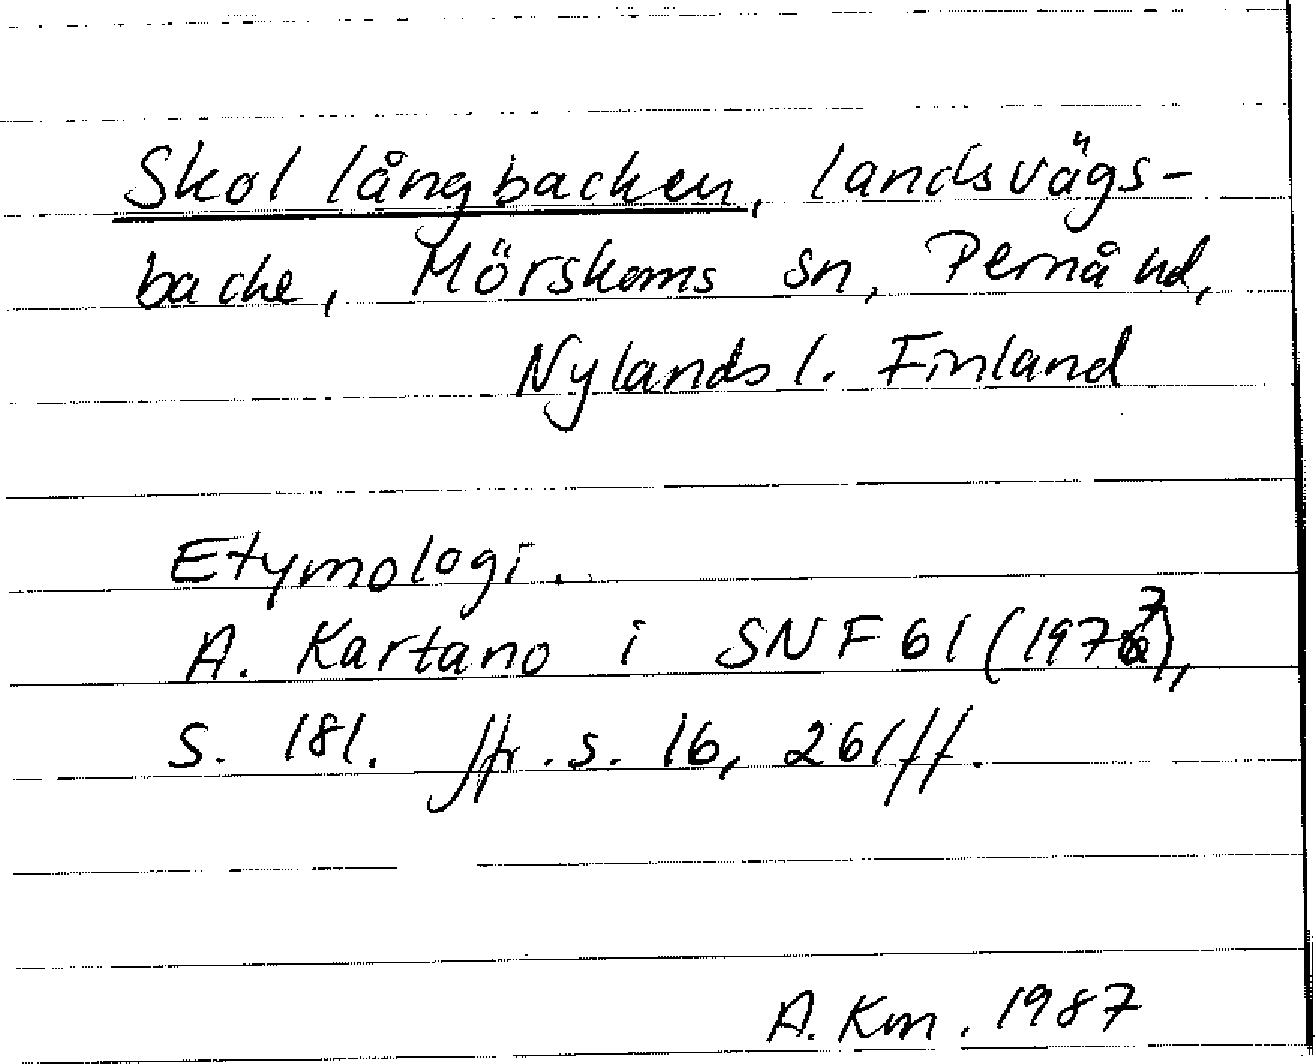 Skol långbacken, landsvägs-
backe, Mörskoms sn, Pernå hd,
Nylands l. Finland
Etymologi.
A. Kartano i SNF 61 (1977),
s. 181. Jfr. s. 16, 261 ff.
A. Km. 1987